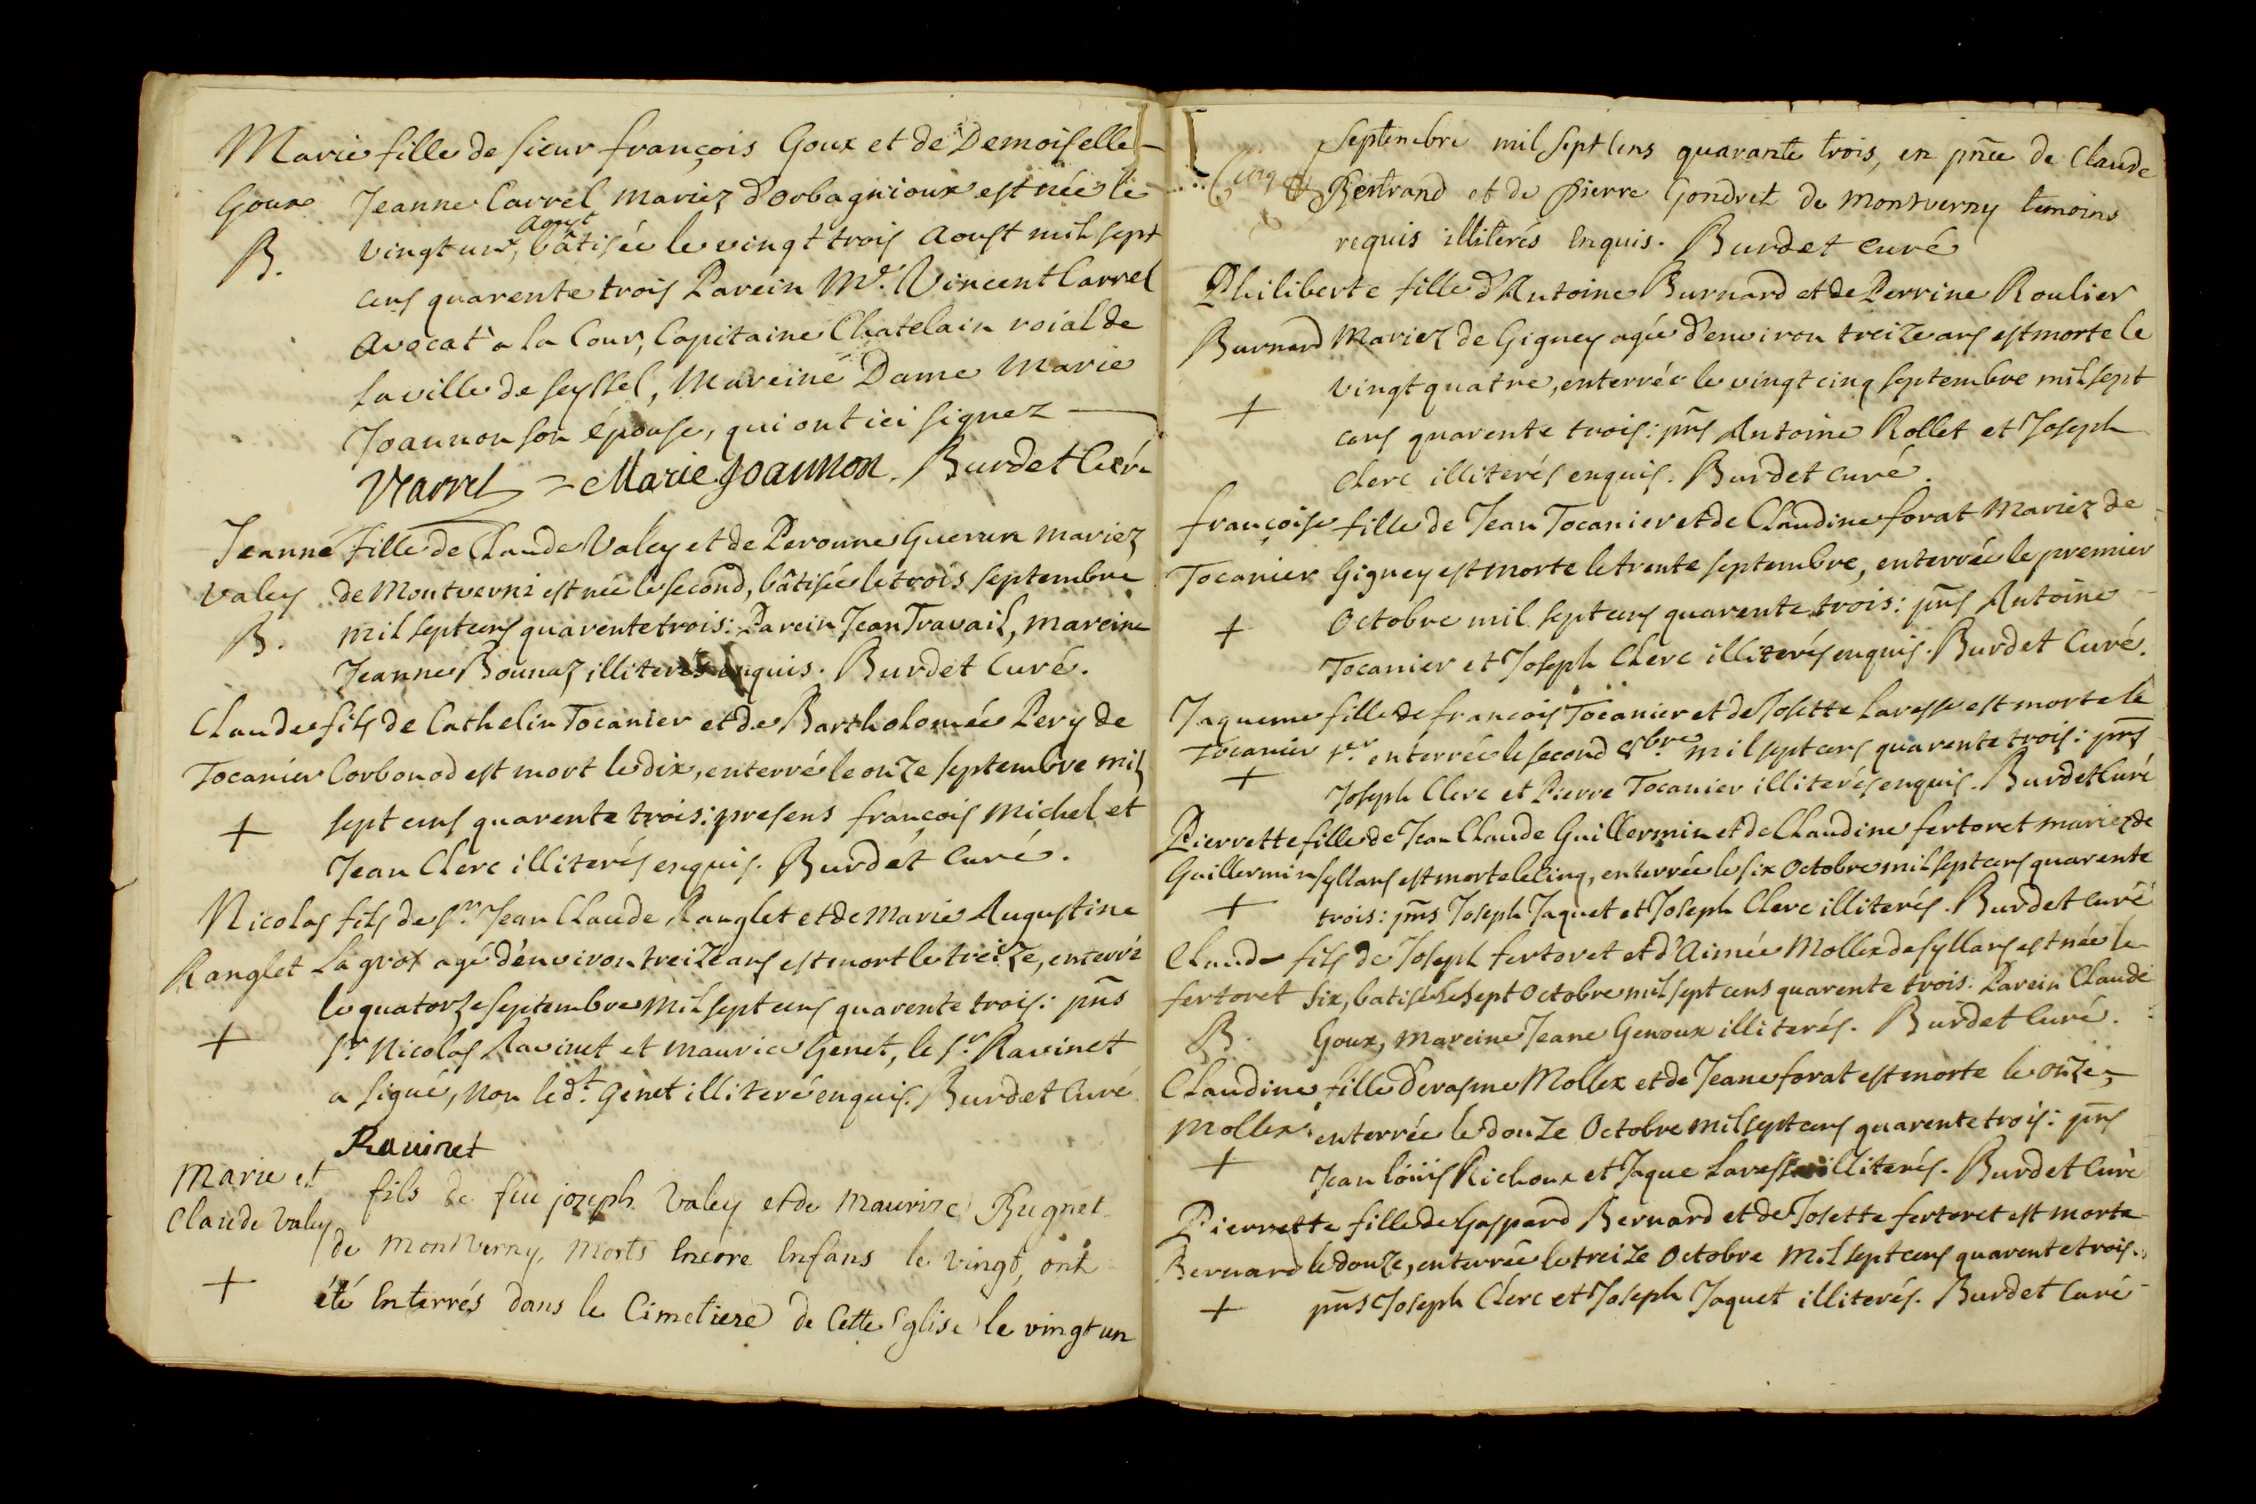 Marie fille de sieur françois Goux et de Demoiselle
Goux Jeanne Carrel mariez d'orbagnioux est née le
aoust
B. vingt un, bâtisée le vingt trois Aoust mil sept
cens quarente trois Parein Mr. Vincent Carrel
Avocat à la Cour, Capitaine Chatelain roial de
la ville de seyssel, Mareine Dame Marie
Joannon son épouse, qui ont ici signez
VCarrel = Marie Joannon. Burdet Curé
Jeanne fille de Claude Valey et de Peronne Guerun mariez
Valey de Montverni est née le second, bâtisée le trois septembre
B. mil sept cens quarente trois: Parein Jean Travail, mareine
Jeanne Bounaz illiterés enquis. Burdet Curé.
Claude fils de Cathelin Tocanier et de Bartholomée Pery de
Tocanier Corbonod est mort le dix, enterré le onze septembre mil
+ sept cens quarente trois: presens françois Michel et
Jean Clerc illiterés enquis. Burdet Curé.
Nicolas fils de sr. Jean Claude Ranglet et de Marie Augustine
Ranglet La grox agé d'environ treize ans est mort le treize, enterré
le quatorze septembre mil sept cens quarente trois: pñs
+ sr. Nicolas Ravinet et maurice Genet, le sr. Ravinet
a signé, non le dt. Genet illiteré enquis. Burdet Curé
Ravinet
Marie et fils de feu joseph Valey et de Maurize Bugnet
Claude Valey de Montverny, morts Encore Enfans le vingt, ont
+ été Enterrés dans le Cimetiere de Cette Eglise le vingt un
septembre mil sept Cens quarante trois, en pñce de Claude
Cinq Bertrand et de Pierre Gondret de Montverny temoins
requis illiterés Enquis. Burdet Curé
Philiberte fille d'Antoine Burnard et de Perrine Roulier
Burnard Mariez de Gigney agée d'environ treize ans est morte le
vingt quatre, enterrée le vingt cinq septembre mil sept
+ cens quarente trois: pñs Antoine Rollet et Joseph
Clerc illiterés enquis. Burdet curé.
françoise fille de Jean Tocanier et de Claudine forat Mariez de
Tocanier Gigney est morte le trente septembre, enterrée le premier
+ Octobre mil sept cens quarente trois: pñs Antoine
Tocanier et Joseph Clerc illiterés enquis. Burdet Curé.
Jaqueme fille de françois Tocanier et de Josette Lavesse est morte le
Tocanier 1er. enterrée le second 8bre mil sept cens quarente trois: pñs
+ Joseph Clerc et Pierre Tocanier illiterés enquis. Burdet Curé
Pierrette fille de Jean Claude Guillermin et de Claudine fertoret mariez de
Guillermin syllans est morte le cinq, enterrée le six Octobre mil sept cens quarente
+ trois: pñs Joseph Jaquet et Joseph Clerc illiterés. Burdet curé
Claude fils de Joseph fertoret et d'Aimée Mollex de syllans est née le
fertoret six, batisé le sept Octobre mil sept cens quarente trois. Parein Claude
B. Goux, mareine Jeane Genoux illiterés. Burdet Curé.
Claudine fille d'erasme Mollex et de Jeane forat est morte le onze,
Mollex enterrée le douze Octobre mil sept cens quarente trois: pñs
+ Jean loüis Richoux et Jaque Lavesse illiterés. Burdet Curé
Pierrette fille de Gaspard Bernard et de Josette fertoret est morte
Bernard le douze, enterrée le treize Octobre mil sept cens quarente trois.
+ pñs Joseph Clerc et Joseph Jaquet illiterés. Burdet Curé